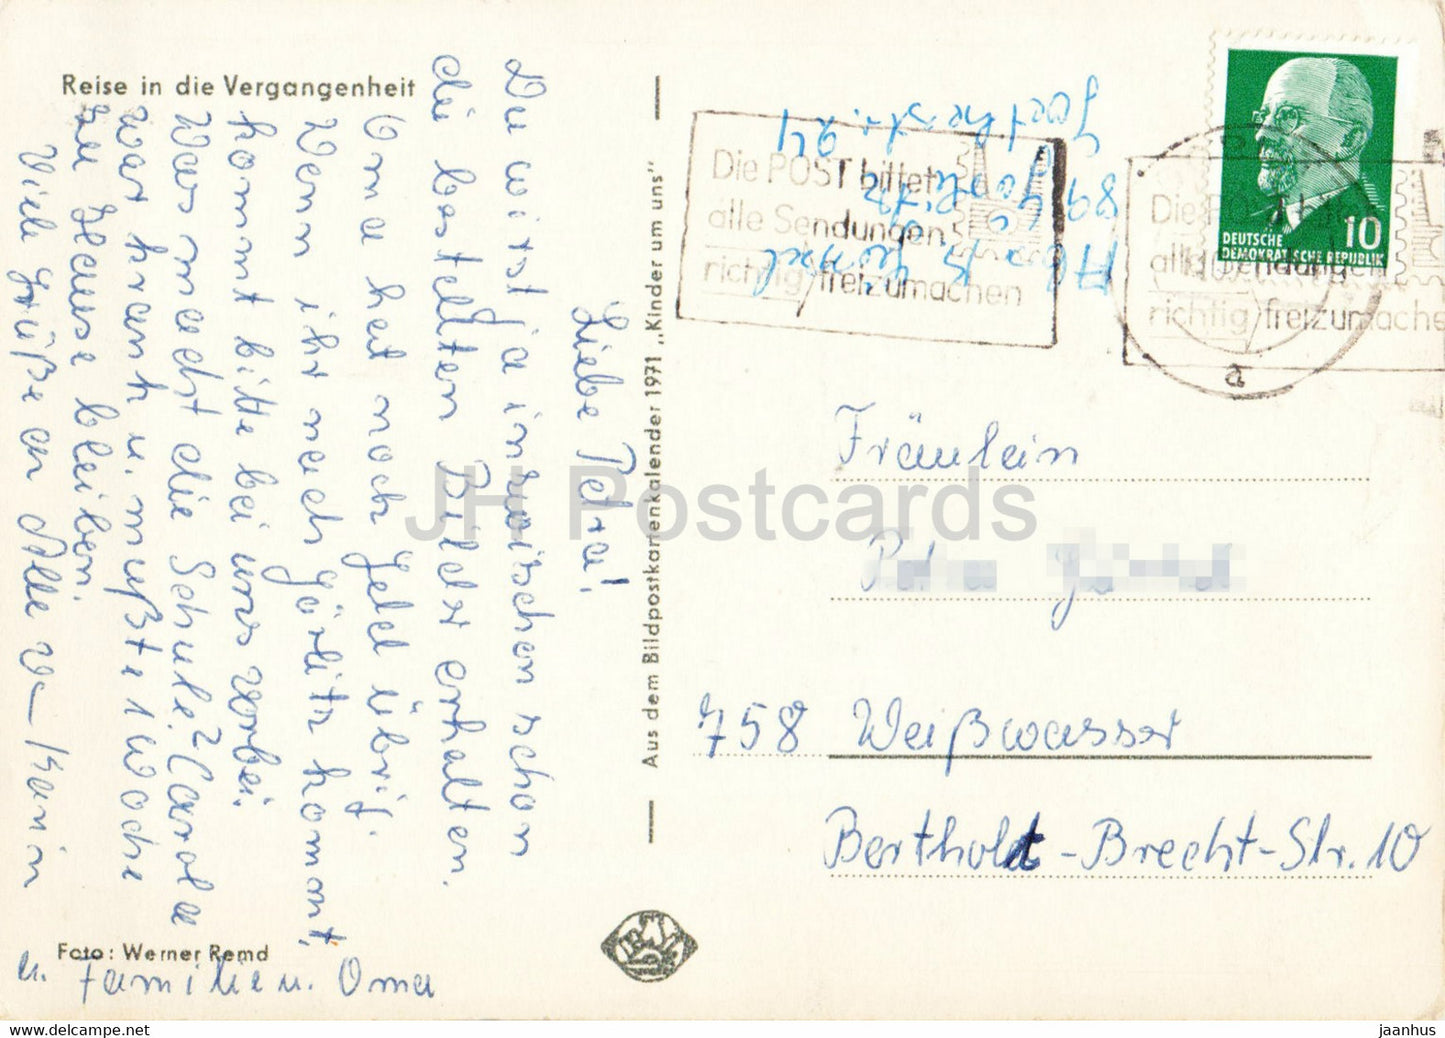 Reise in die Vergangenheit
Liebe Petra!
Du wirst ja inzwischen schon
die bestellten Bilder erhalten.
Oma hat noch Geld übrig.
Wenn ihr nach Görlitz kommt,
kommt bitte bei uns vorbei.
Was macht die Schule? Carola
war krank u. mußte 1 Woche
zu Hause bleiben.
Viele Grüße an Alle v. Karin
u. Familie u. Oma
Foto: Werner Remd
Aus dem Bildpostkartenkalender 1971 „Kinder um uns"
Abs. K.
89 Görlitz
Goethestr. 24
Die POST bittet
alle Sendungen
richtig freizumachen
Die POST bittet
alle Sendungen
richtig freizumachen
a
10
DEUTSCHE
DEMOKRATISCHE REPUBLIK
Fräulein
Petra
758 Weißwasser
Berthold-Brecht-Str. 10
JH Postcards
www.delcampe.net
jaanhus